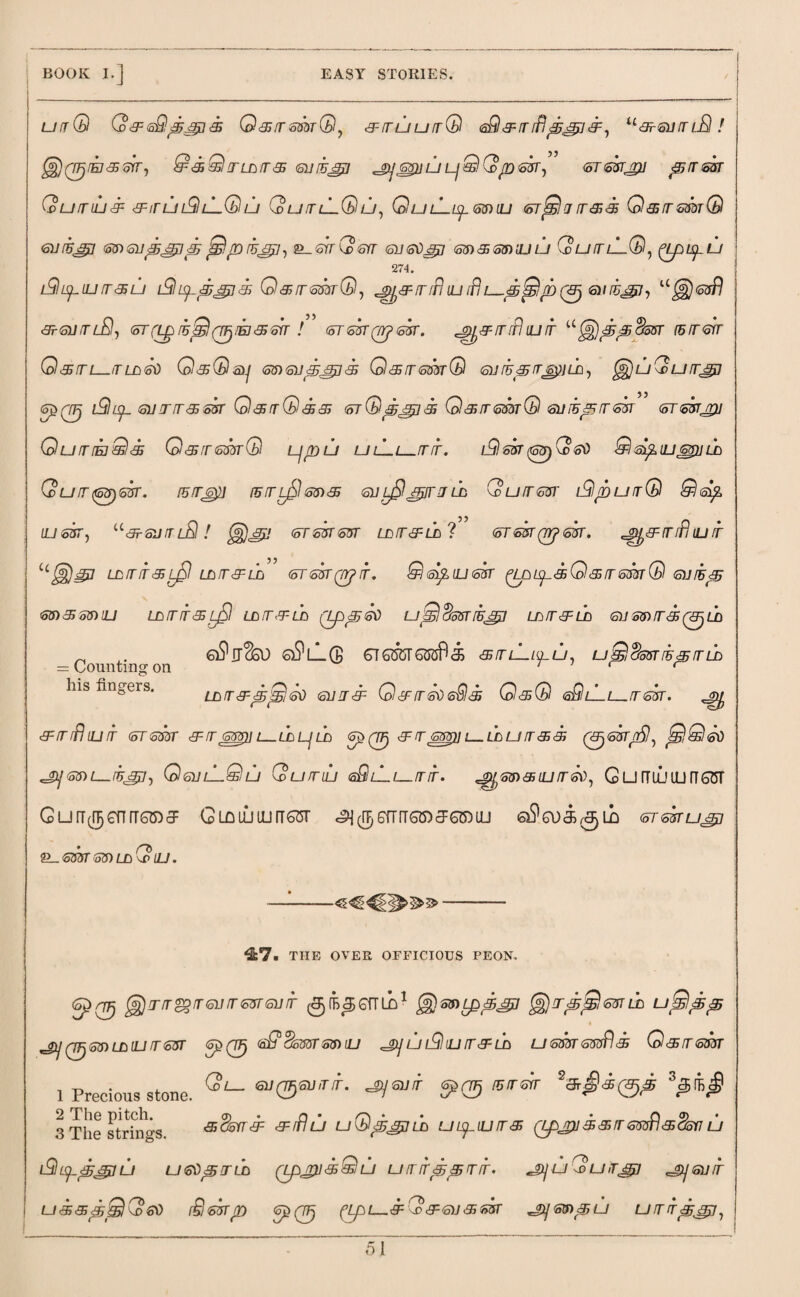 BOOK I.] EASY STORIES.
பாடு செவித்துக் கொண்டு, சாப்பாடு விசாரித்துச், “சுவாமி!
இருங்கள், சீக்கிரமாக வந்து அனுப்புகிறேன்,” என்று தான்
போய்ச் சாப்பிட்டுப் போட்டுப், பெட்டியை எடுத்துக் கொண்டு
வந்து வைத்துத் திறந்து, உள்ளே வலது கையைப் போட்டு, முடிப்
274.
பிடியாகப் பிடித்துக் கொண்டு, ஆசாரியரிடத்திற்கு வந்து, “இனி
சுவாமி, எழுந்திருங்கள்!” என்றான். ஆசாரியார் “இத்தனை நாள்
கொட்டாமல் கெடு வைத்துக் கொண்டு வந்தாலும், இப்போது
ஒரு பிடி வராகன் கொடுக்க எடுத்துக் கொண்டு வந்தான்” என்று
பொங்கிக் கொண்டு புறப்பட்டார். பின்னேலே சிஷியனும்
போனான். நாலு நாழிகை வழிதூரம் போன பிற்பாடு சிஷி
யன், “சுவாமி! இது என்ன மாசம்?” என்றான். ஆசாரியார்
“இது மார்கழி மாசம்” என்றார். சிஷியன் முடிக்கொண்டு வந்த
கையை மார்கழி மாசம் முதல் பதினைந்து மாசம் வரைக்கும்
= Counting on
his fingers.
விரலை விட்டு எண்ணிக் காட்டிப், பதினைந்தாம்
மாசத்தில் வரச் சொல்லிக் கெடு விட்டான். ஆ
சாரியார் எண் சாணுடம்பும் ஒரு சாணுடம்பாகக் குன்றி, திகில்
அடைந்து, வெட்கிப் போய் விட்டார். ஆகையால், பொய்யான
பேராளாசை மெய்யான அருளாசையை விலக்கும் என்பது
உண்மையே.
47. THE OVER OFFICIOUS PEON.
ஒரு இராஜாவானவர் குந்தளம்¹ இழைத்து இரத்தினம் பதித்த
அருமையான ஒரு வீணையை அப்பியாசம் பண்ணிக் கொண்
1 Precious stone.
2 The pitch.
3 The strings.
டே வருவார். அவர் ஒரு நாள் ²சுதிக்குத் ³தந்தி
களைச் சரிப் படுத்தும் படியாக முறுக்காணிகளைப்
பிடித்துப் பலதரம் முறுக்கிப் பார்த்தார். அப்போது அவர்
பக்கத்திலே நின்ற ஒரு முடச்சேவகன் அதைப் பார்த்து,
51